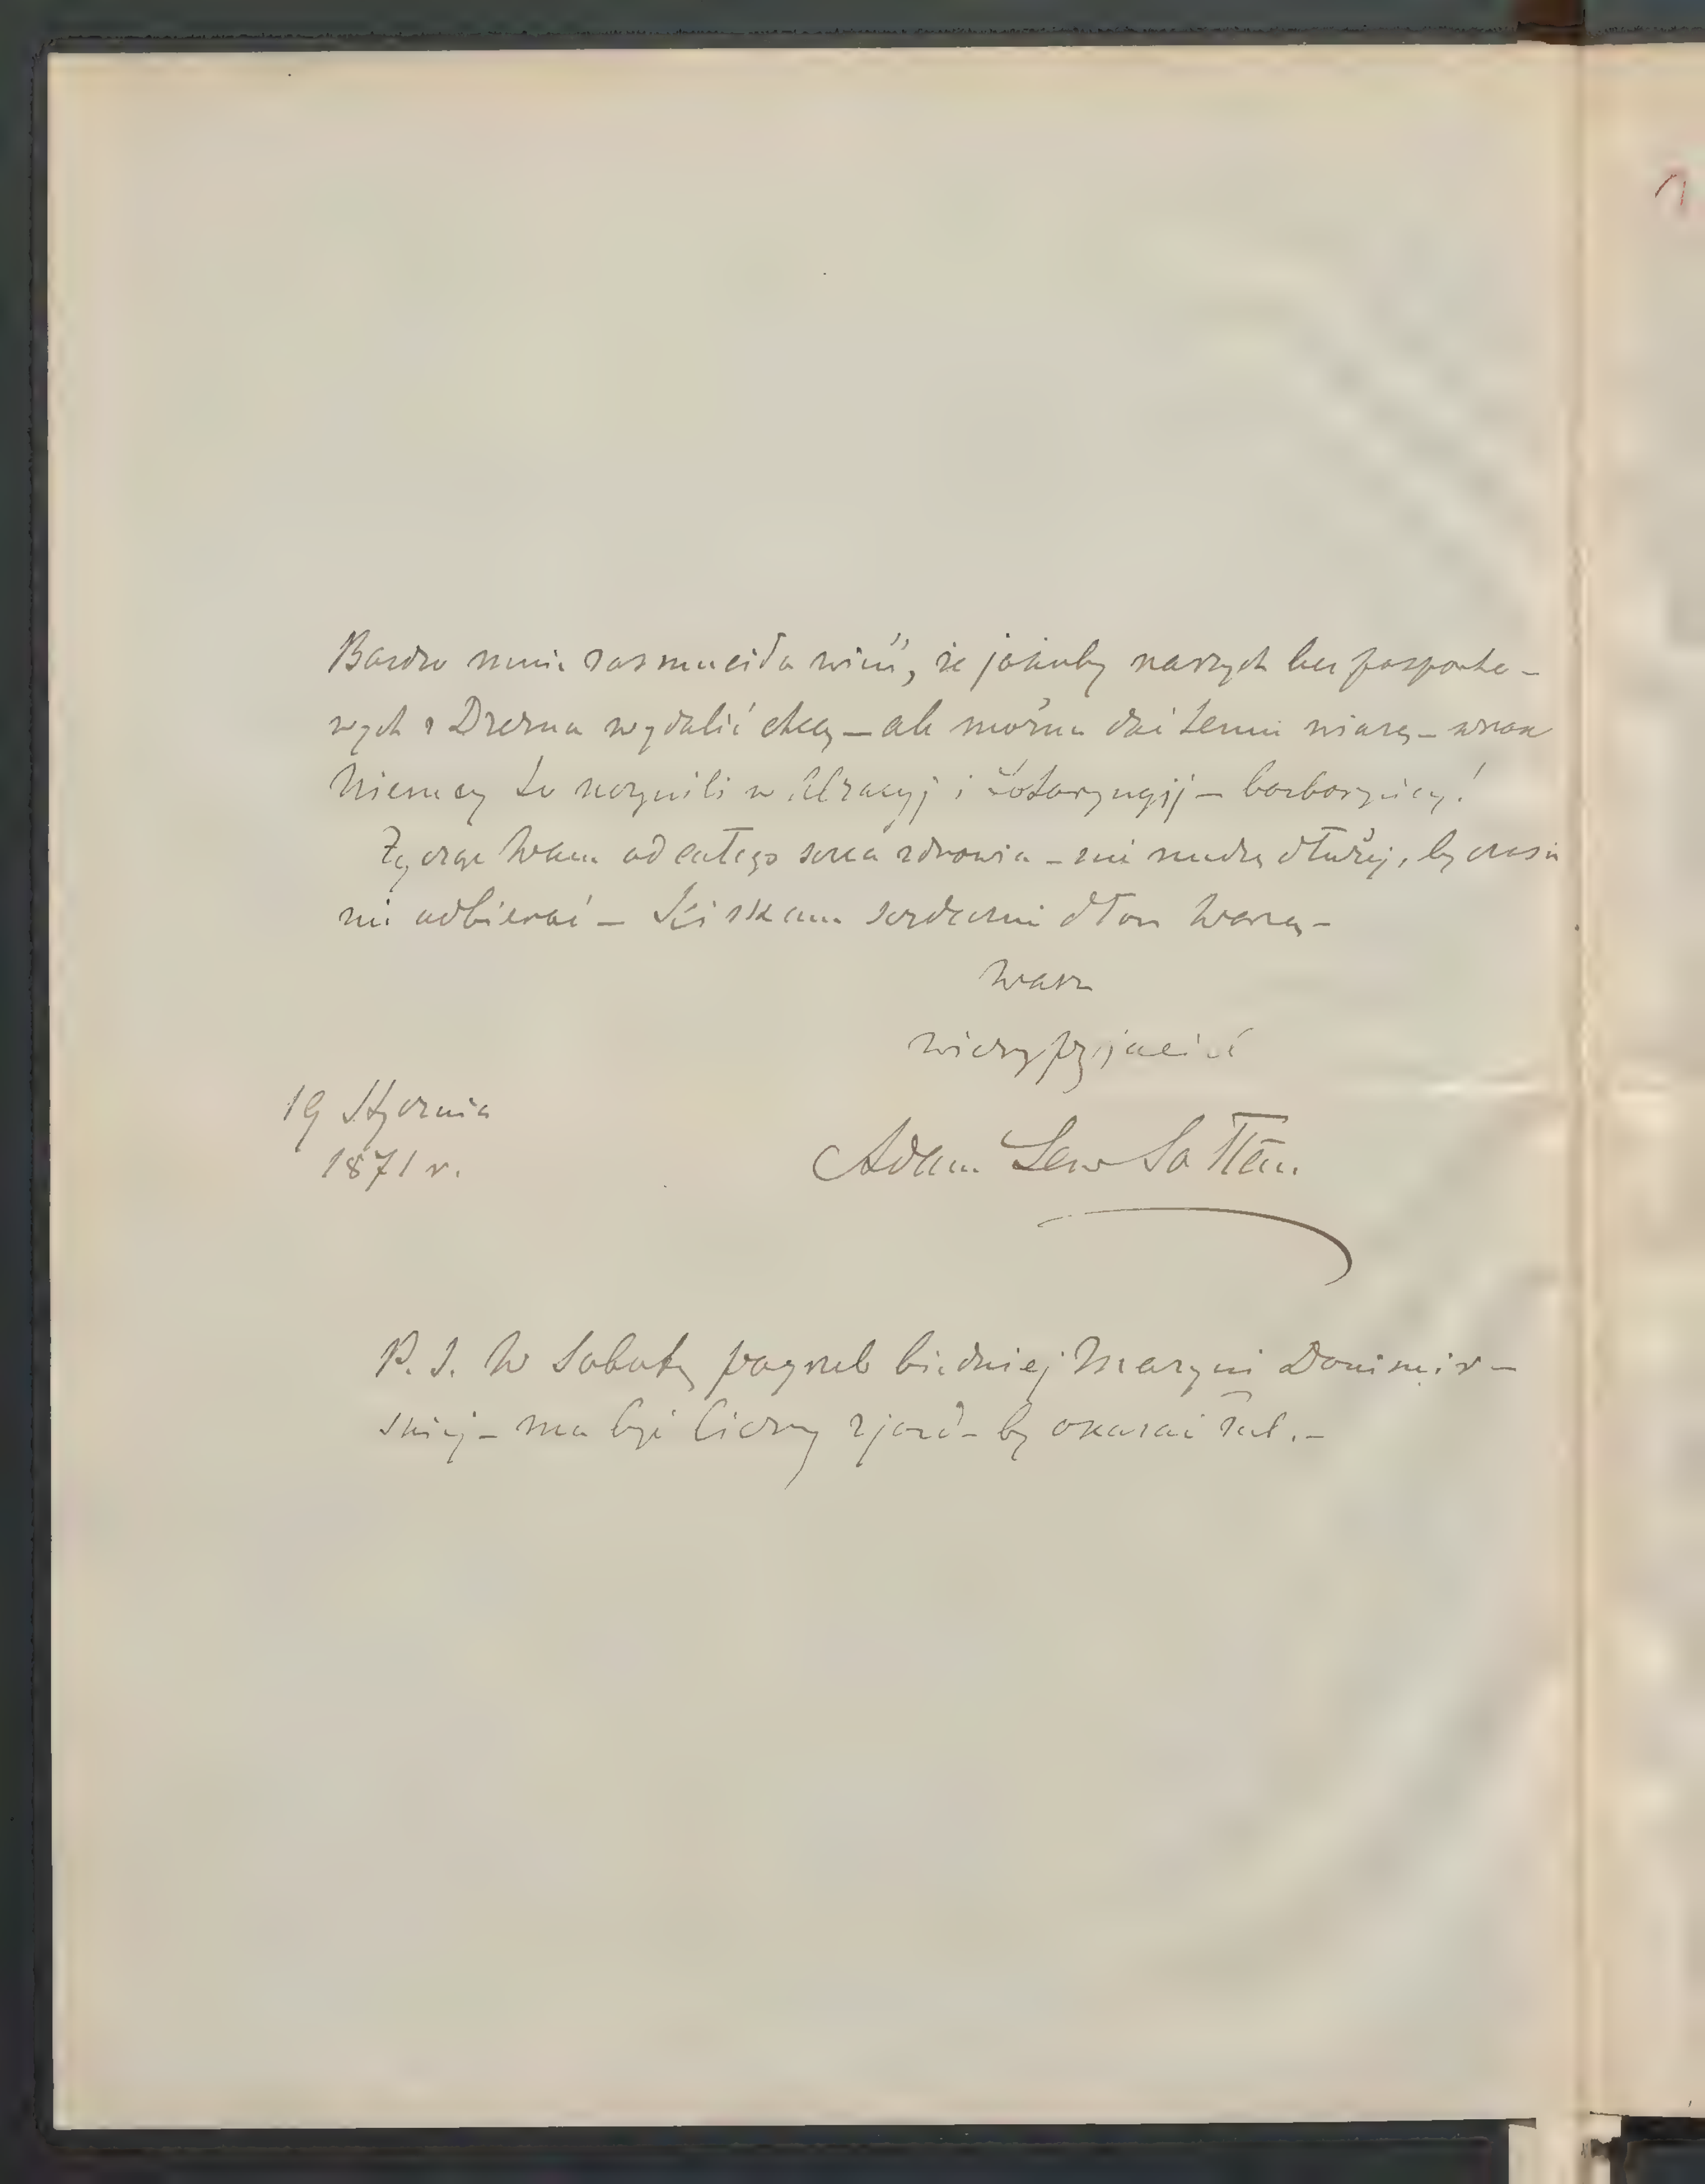 Bardzo mnie zasmuciła wieść, że jakoby naszych bez paszporto-
wych z Drezna wydalić chcą – ale można dać temu wiarę – wszak
Niemcy to uczynili w Alzacyj i Lotaryngij – barbarzyńcy!
Życzę Wam od całego serca zdrowia – nie nudzę dłużej, by czasu
nie odbierać – Ściskam serdecznie dłoń Waszą –
Wasz
wierny przyjaciel
19 Stycznia
1871 r.
Adam Lew Sołtan.
P. S. W Sobotę pogrzeb biedniej Maryni Donimir-
skiej – ma być liczny zjazd – by okazać żal. –
1